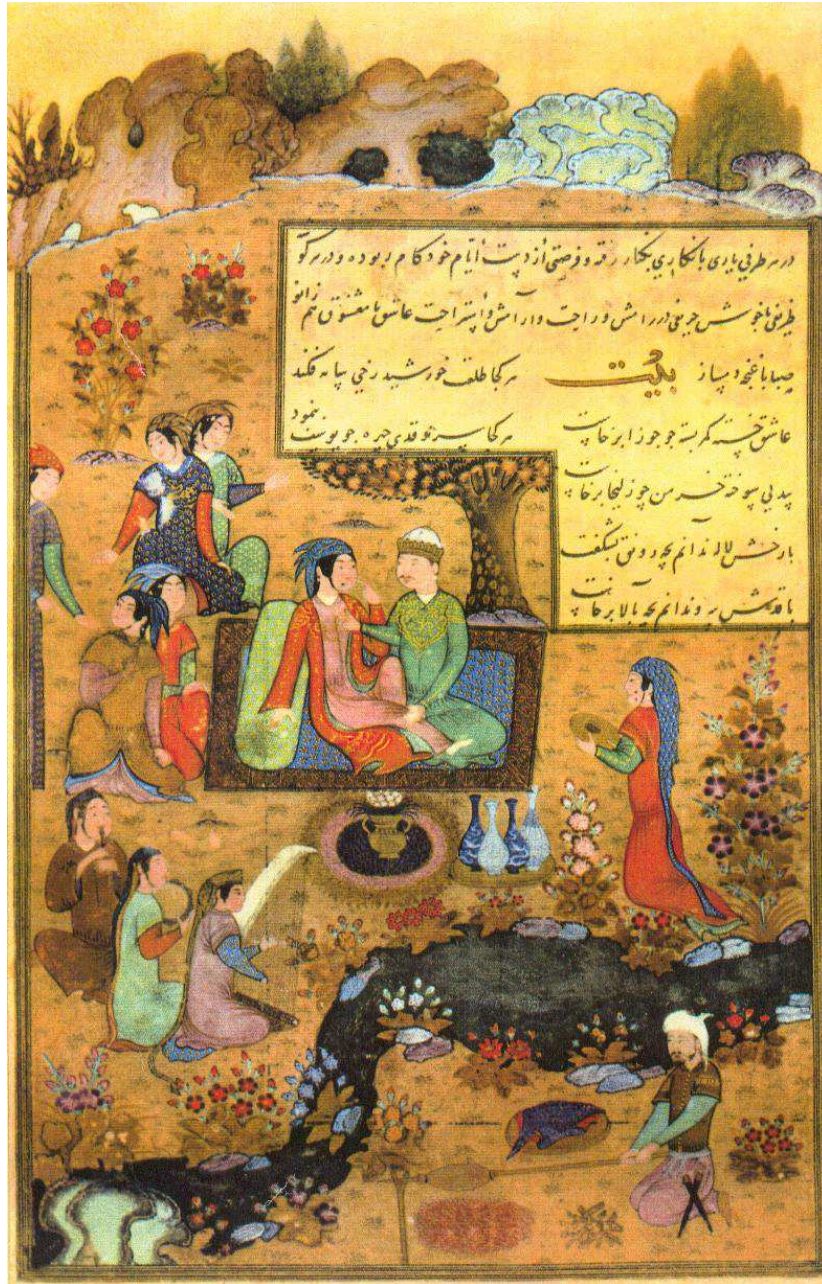 در هر طرفی یاری با نگاری بکنار رفته و فرصتی از دست ایام خود کام ربوده و در هر گو
ظریفی با خوش حریفی در رامش و راحت و آرامش و استراحت عاشق با معشوق هم زانو
صبا با غنچه دمساز بیت هر کجا طلعت خورشید رخی سایه فکند
عاشق خسته کمر بسته چو جوزا برخاست هر کجا سرو قدی چهره چو یوسف بنمود
بیدلی سوخته خرمن چو زلیخا برخاست
با رخش لاله ندانم بچه رونق بشکفت
با قدش سرو ندانم بچه بالا برخاست